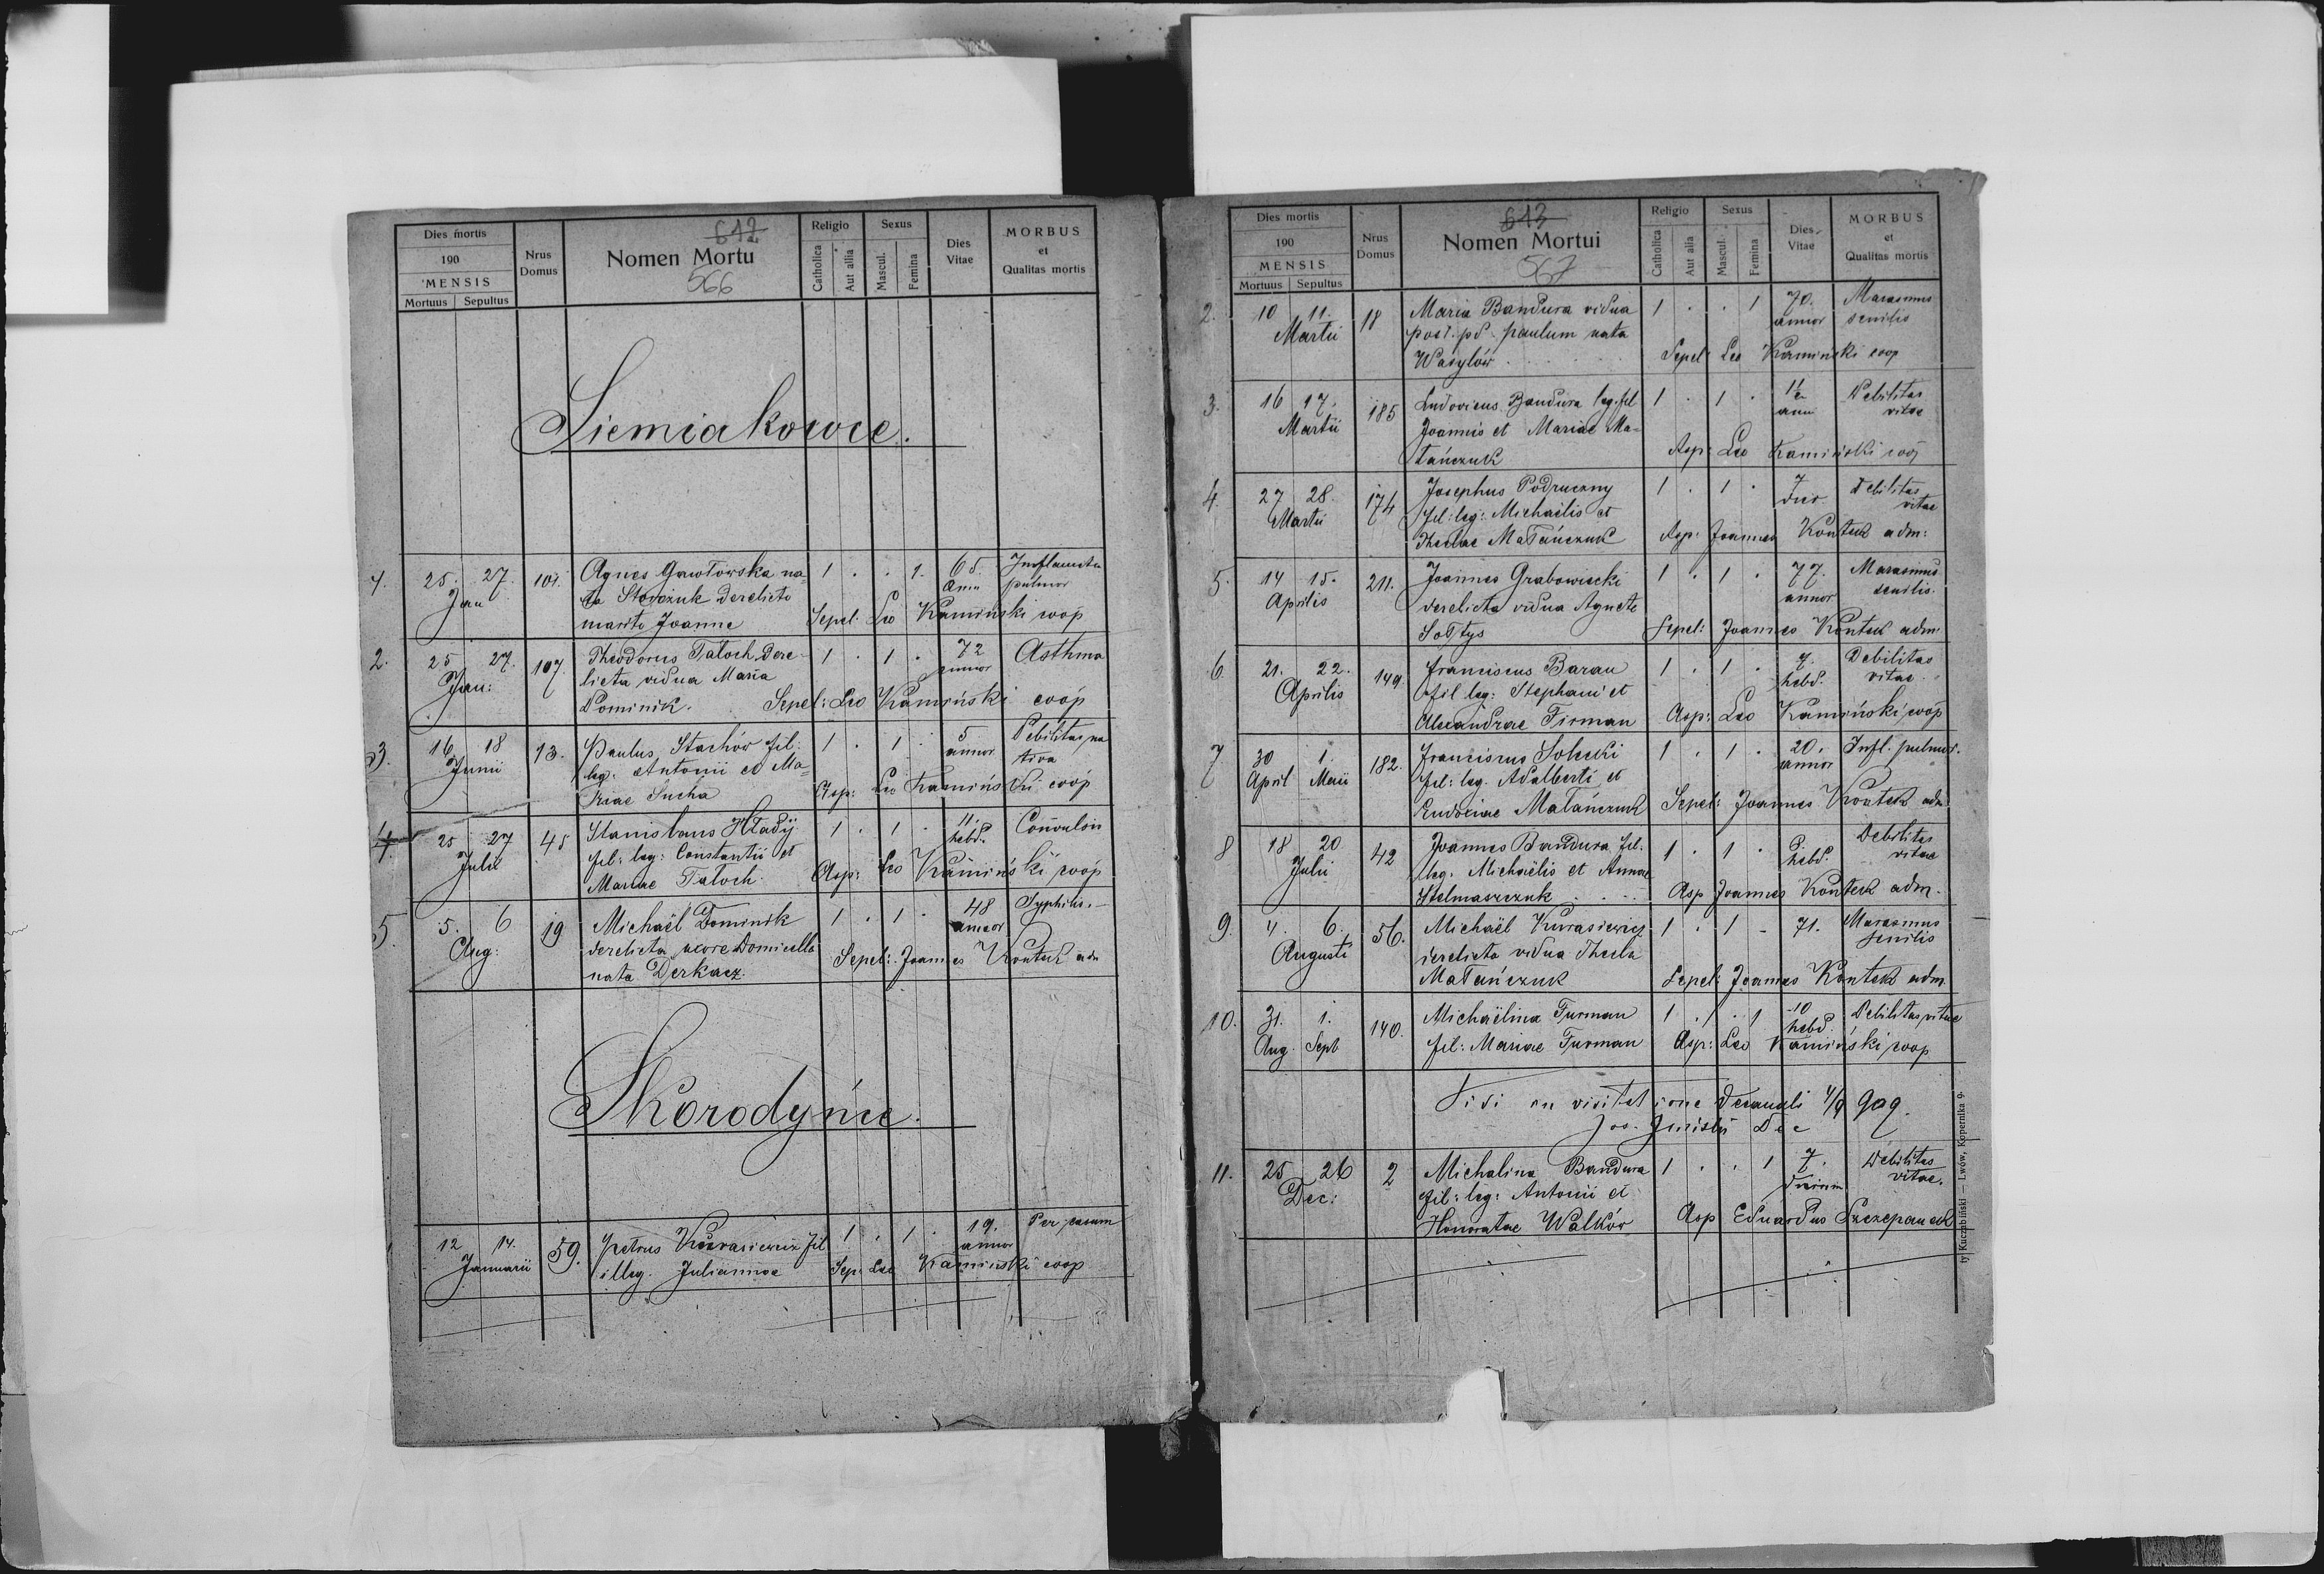 Dies mortis
190
MENSIS
Mortuus Sepultus
Nrus
Domus
612
Nomen Mortu
566
Religio
Catholica
Aut allia
Sexus
Mascul.
Femina
Dies
Vitae
MORBUS
et
Qualitas mortis
Siemiakowce.
1. 25. 27. 101. Agnes Gawłowska na- 1 . . 1. 65. Inflammatio
Jan ta Storożuk derelicto annor pulmor
marito Joanne Sepel: Leo Kamiński coop
2. 25 27. 107. Theodorus Tatoch, dere- 1 . 1 . 72 Asthma
Jan: licta vidua Maria annor
Dominik. Sepel: Leo Kamiński coop
3. 16 18 13. Paulus Stachów fil: 1 . 1 . 5 Debilitas na
Junii leg: Antonii et Ma- annor tiva
riae Sucha Asp: Leo Kamiński coop
4. 25 27 45 Stanislaus Hładÿ 1 . 1 . 11. Convulsio
Julii fil: leg: Constantii et hebd.
Mariae Tatoch. Asp: Leo Kamiński coop
5. 5. 6 19 Michaël Dominik 1 . 1 . 48 Syphilis.
Aug: derelicta uxore Domicella annor
nata Derkacz. Sepel: Joannes Kontek adm
Skorodyńce.
12 14. 59. Petrus Kurasiewicz fil 1 . 1 . 19. Per casum
Januarii illeg. Juliannae annor
Sep: Leo Kamiński coop
Dies mortis
190
MENSIS
Mortuus Sepultus
Nrus
Domus
613
Nomen Mortui
567
Religio
Catholica
Aut alia
Sexus
Mascul.
Femina
Dies
Vitae
MORBUS
et
Qualitas mortis
2. 10 11. 18 Maria Bandura vidua 1 . . 1 70. Marasmus
Martii post. pd. Paulum nata annor senilis
Wasylów Sepel: Leo Kamiński coop
3. 16 17. 185 Ludovicus Bandura leg. fil 1 . 1 . 1½ Debilitas
Martii Joannis et Mariae Ma- anni vitae
tańczuk Asp: Leo Kamiński cooj
4. 27 28. 174 Josephus Podruczny 1 . 1 . 7 Debilitas
Martii fil: leg: Michaëlis et dier vitae
Theclae Matańczuk Asp: Joannes Kontek adm:
5. 14 15. 211. Joannes Grabowiecki 1 . 1 . 77. Marasmus
Aprilis derelicta vidua Agnete annor senilis.
Sołtys Sepel: Joannes Kontek adm:
6 21. 22. 149. Franciscus Baran 1 . 1 . 7. Debilitas
Aprilis fil leg: Stephani et hebd. vitae.
Alexandrae Firman Asp: Leo Kamiński coop
7 30 1. 182. Franciscus Solecki 1 . 1 . 20. Infl. pulmor.
April Maii fil: leg. Adalberti et annor
Eudociae Matańczuk Sepel: Joannes Kontek adm
8 18 20 42 Joannes Bandura fil. 1 . 1 . hebd. Debilitas
Julii leg. Michaëlis et Annae vitae
Stelmaszczuk Asp Joannes Kontek adm.
9. 4. 6. 56. Michaël Kurasiewicz 1 . 1 - 71. Marasmus
Augusti derelicta vidua Thecla senilis
Matańczuk Sepel: Joannes Kontek adm
10. 31. 1. 140. Michaëlina Furman 1 . . 1 10 Debilitas vitae
Aug. Sept fil: Mariae Furman hebd.
Asp: Leo Kamiński coop
Vidi in visitatione Decanali 4/9 909.
Jos. Dec
11. 25 26 2 Michalina Bandura 1 . . 1 7. Debilitas
Dec: fil: leg: Antonii et dierum vitae.
Honoratae Walków Asp Eduardus Szczepanek
ty Kuczabiński — Lwów, Kopernika 9.